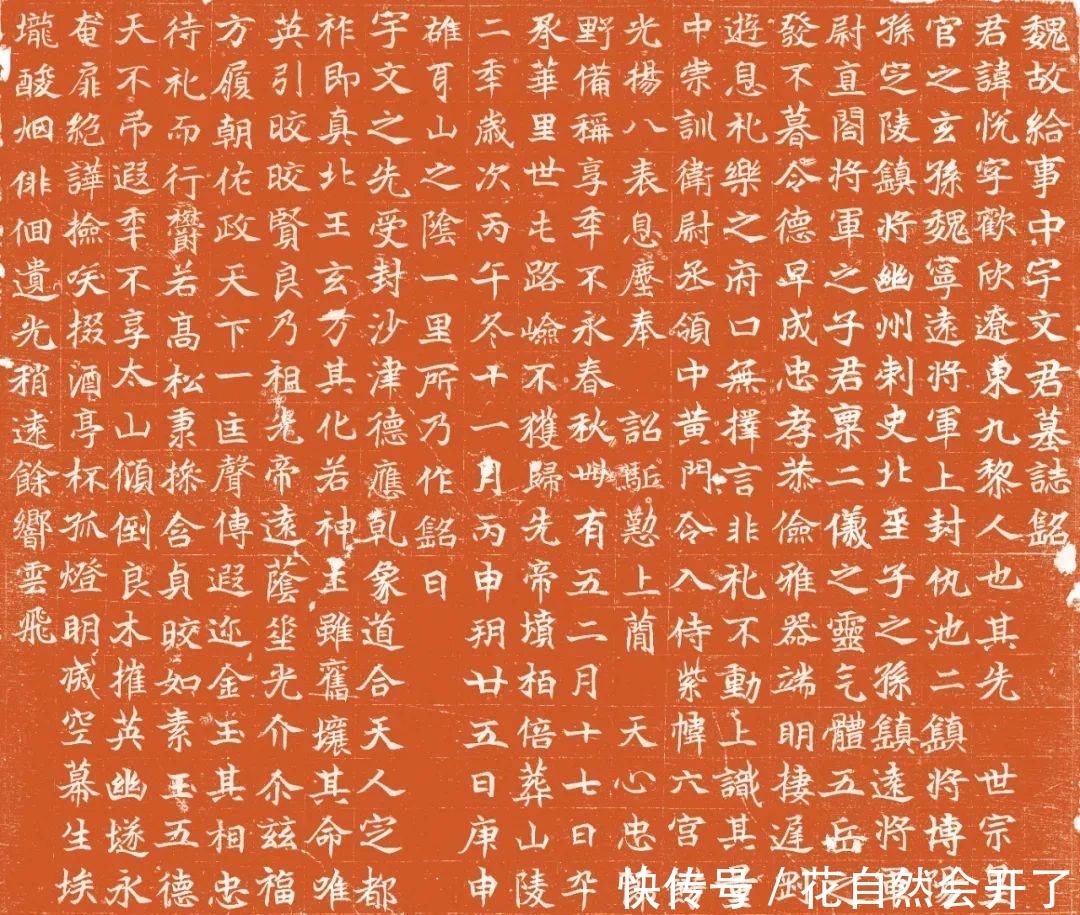 魏故給事中宇文君墓誌銘
君諱悅字歡欣遼東九黎人也其先世宗
官之玄孫魏寧遠將軍上封仇池二鎮將博陽
孫定陵鎮將幽州刺史北平子之孫鎮遠將軍
尉直閤將軍之子君稟二儀之靈气體五岳之
發不暮令德早成忠孝恭儉雅器端明棲遲
遊息礼樂之府口無擇言非礼不動上識其
中崇訓衛尉丞領中黃門令入侍紫幃六宮
光揚八表息塵奉 詔駈懃上蕑 天心忠
野備稱享年不永春秋卌有五二月十七日卒
承華里世屯路嶮不獲歸先帝墳栢倍葬山陵
二年歲次丙午冬十一月丙申朔廿五日庚申
雄耳山之陰一里所乃作銘曰
宇文之先受封沙津德應乾象道合天人定都
祚即真北王玄万其化若神主雖舊壤其命唯
英引晈晈賢良乃祖帝遠蔭光介介兹福
方履朝佐政天下一匡聲傳遐迩金玉其相忠
待礼而行欝若高松秉操含貞晈如素玉五德
天不吊遐年不享太山傾倒良木摧英幽墜永
奄扉絕譁撿咲掇酒亭杯孤燈明滅空幕生埃
壠酸烟俳佪遺光稍遠餘嚮雲飛
快传号 / 花自然会开了